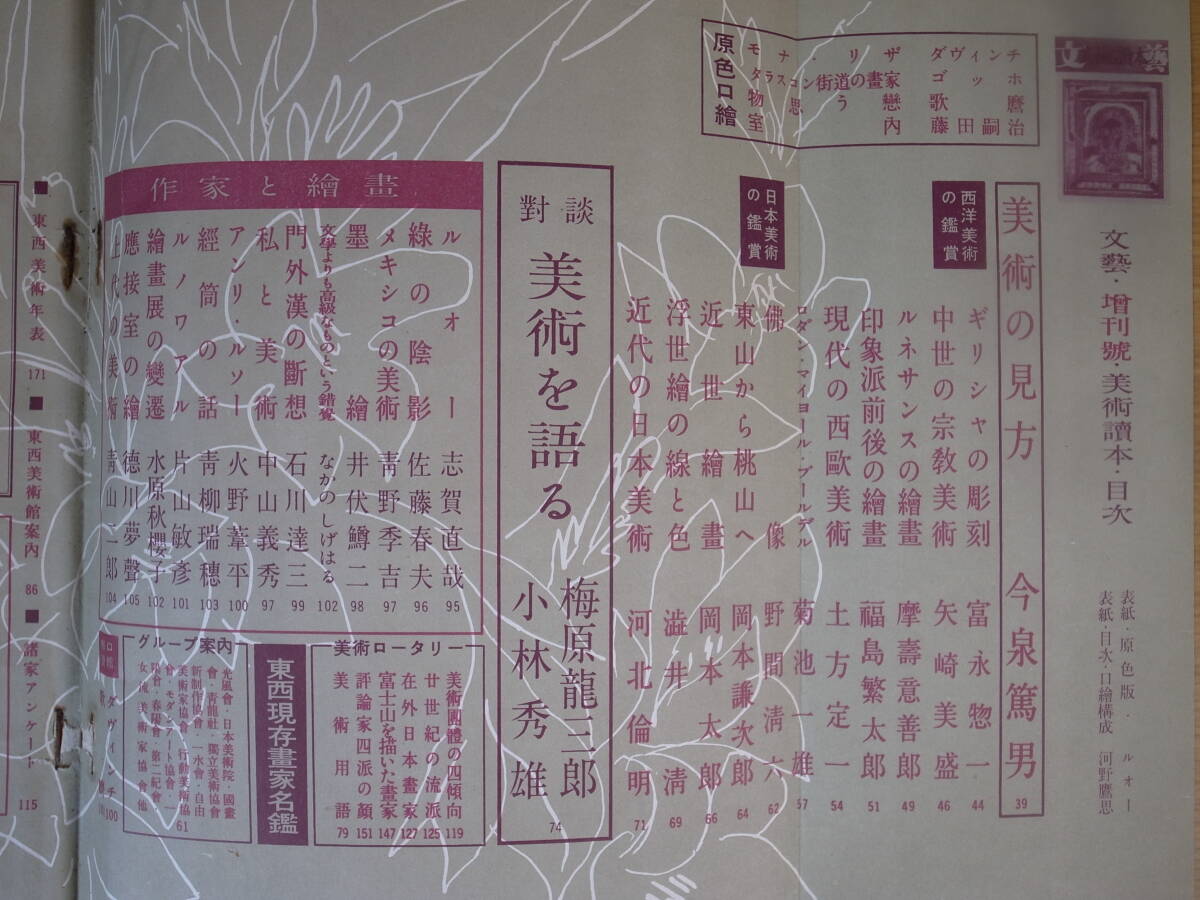 文藝
文藝・增刊號・美術讀本・目次
表紙・原色版・ルオー
表紙・目次・口繪構成 河野鷹思
原色口繪
モナ・リザ ダヴィンチ
タラスコン街道の畫家 ゴッホ
物思う戀 歌麿
室內 藤田嗣治
美術の見方 今泉篤男 39
西洋美術の鑑賞
ギリシャの彫刻 富永惣一 44
中世の宗教美術 矢崎美盛 46
ルネサンスの繪畫 摩壽意善郎 49
印象派前後の繪畫 福島繁太郎 51
現代の西歐美術 土方定一 54
ロダン・マイヨール・ブールデル 菊池一雄 57
日本美術の鑑賞
佛像 野間淸六 62
東山から桃山へ 岡本謙次郎 64
近世繪畫 岡本太郎 66
浮世繪の線と色 澁井淸 69
近代の日本美術 河北倫明 71
對談 美術を語る 梅原龍三郎 小林秀雄 74
作家と繪畫
ルオー 志賀直哉 95
綠の陰影 佐藤春夫 96
メキシコの美術 靑野季吉 97
墨繪 井伏鱒二 98
文學よりも高級なものという錯覺 なかのしげはる 102
門外漢の斷想 石川達三 99
私と美術 中山義秀 97
アンリ・ルソー 火野葦平 100
經筒の話 靑柳瑞穗 103
ルノワアル 片山敏彥 101
繪畫展の變遷 水原秋櫻子 102
應接室の繪 德川夢聲 105
上代の美術 靑山二郎 104
美術ロータリー
美術團體の四傾向 119
廿世紀の流派 125
在外日本畫家 127
富士山を描いた畫家 147
評論家四派の顏 151
美術用語 79
東西現存畫家名鑑
グループ案內
光風會・日本美術院・國畫
會・靑龍社・獨立美術協會
新制作協會・一水會・自由
美術家協會・行動美術協
會・モダンアート協會・一
陽會・春陽會・第二紀會・
女流美術家協會他
61
ダヴィンチ
100
■東西美術年表 171 ■東西美術館案內 86 ■諸家アンケート 115